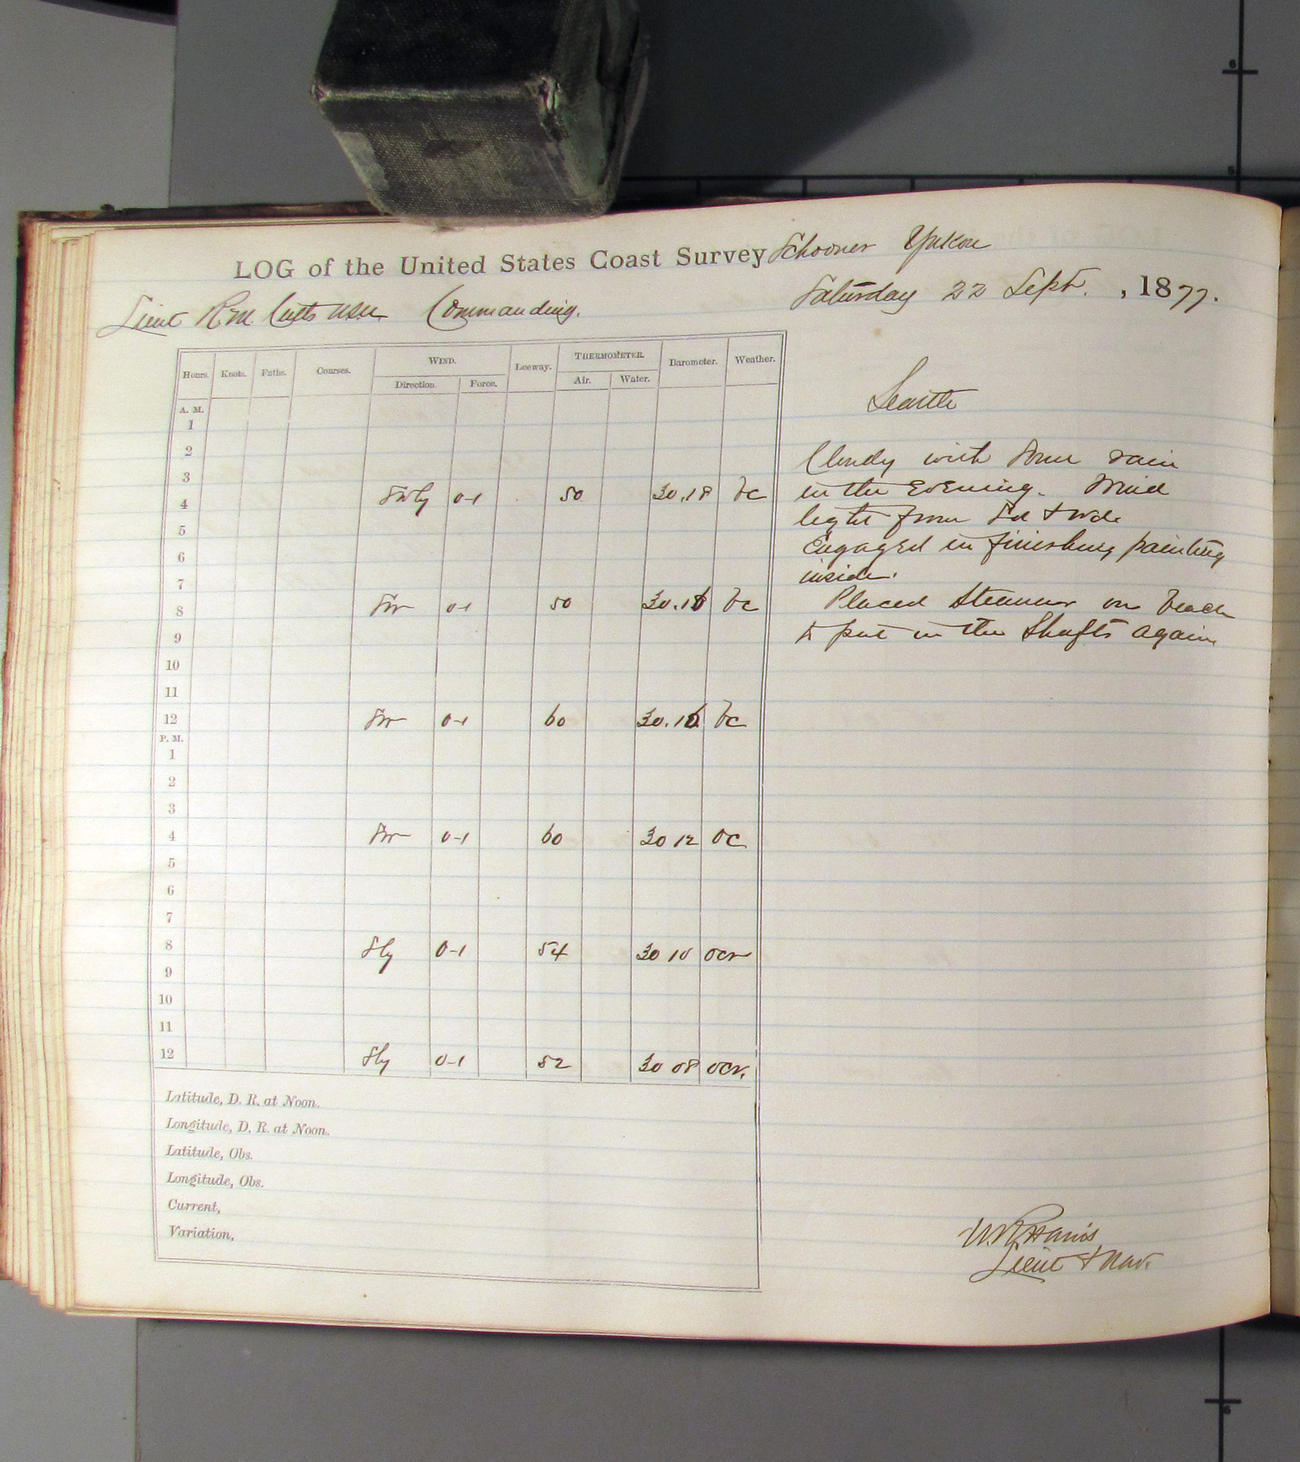 LOG of the United States Coast Survey Schooner Yukon
Lieut R.M. Cutts USN Commanding. Saturday 22 Sept. , 1877.
Hours. Knots. Faths. Courses. WIND. Leeway. THERMOMETER. Barometer. Weather.
Direction. Force. Air. Water.
A. M.
1
2
3
4 SWly 0-1 50 30.18 bc
5
6
7
8 SW 0-1 50 30.16 bc
9
10
11
12 SW 0-1 60 30.16 bc
P. M.
1
2
3
4 SW 0-1 60 30 12 oc
5
6
7
8 Sly 0-1 54 30 10 ocr
9
10
11
12 Sly 0-1 52 30 08 ocr.
Latitude, D. R. at Noon.
Longitude, D. R. at Noon.
Latitude, Obs.
Longitude, Obs.
Current,
Variation,
Seattle
Cloudy with some rain
in the Evening. Wind
light from Sd & Wd.
Engaged in finishing painting
inside.
Placed Steamer on beach
to put in the Shafts again
Harris
Lieut & Nav.
6
5
6